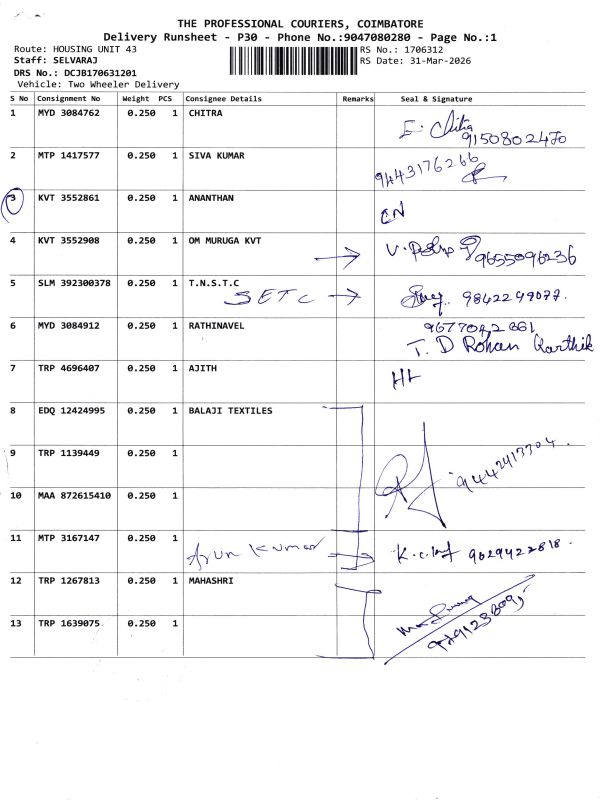 THE PROFESSIONAL COURIERS, COIMBATORE
Delivery Runsheet - P30 - Phone No.:9047080280 - Page No.:1
Route: HOUSING UNIT 43
Staff: SELVARAJ
DRS No.: DCJB170631201
Vehicle: Two Wheeler Delivery
RS No.: 1706312
RS Date: 31-Mar-2026
S No Consignment No Weight PCS Consignee Details Remarks Seal & Signature
1 MYD 3084762 0.250 1 CHITRA E. Chitra
9150802470
2 MTP 1417577 0.250 1 SIVA KUMAR 9443176266
3 KVT 3552861 0.250 1 ANANTHAN CN
4 KVT 3552908 0.250 1 OM MURUGA KVT 9655096236
5 SLM 392300378 0.250 1 T.N.S.T.C
SETC 9842299077.
6 MYD 3084912 0.250 1 RATHINAVEL
T. D Rohan Karthik
7 TRP 4696407 0.250 1 AJITH HL
8 EDQ 12424995 0.250 1 BALAJI TEXTILES
9 TRP 1139449 0.250 1 9442413304.
10 MAA 872615410 0.250 1
11 MTP 3167147 0.250 1
Arun Kumar 9029422818.
12 TRP 1267813 0.250 1 MAHASHRI
13 TRP 1639075 0.250 1